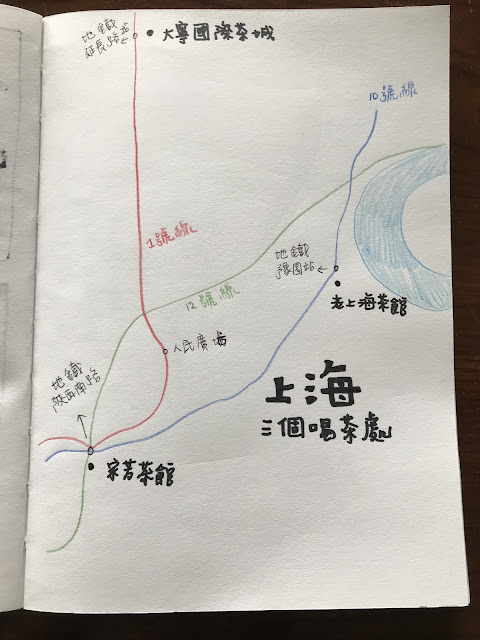 地鐵
延長路站
大寧國際茶城
10號線
1號線
地鐵
豫園站
12號線
老上海茶館
人民廣場
地鐵
陝西南路
上海
三個喝茶處
宋若茶館